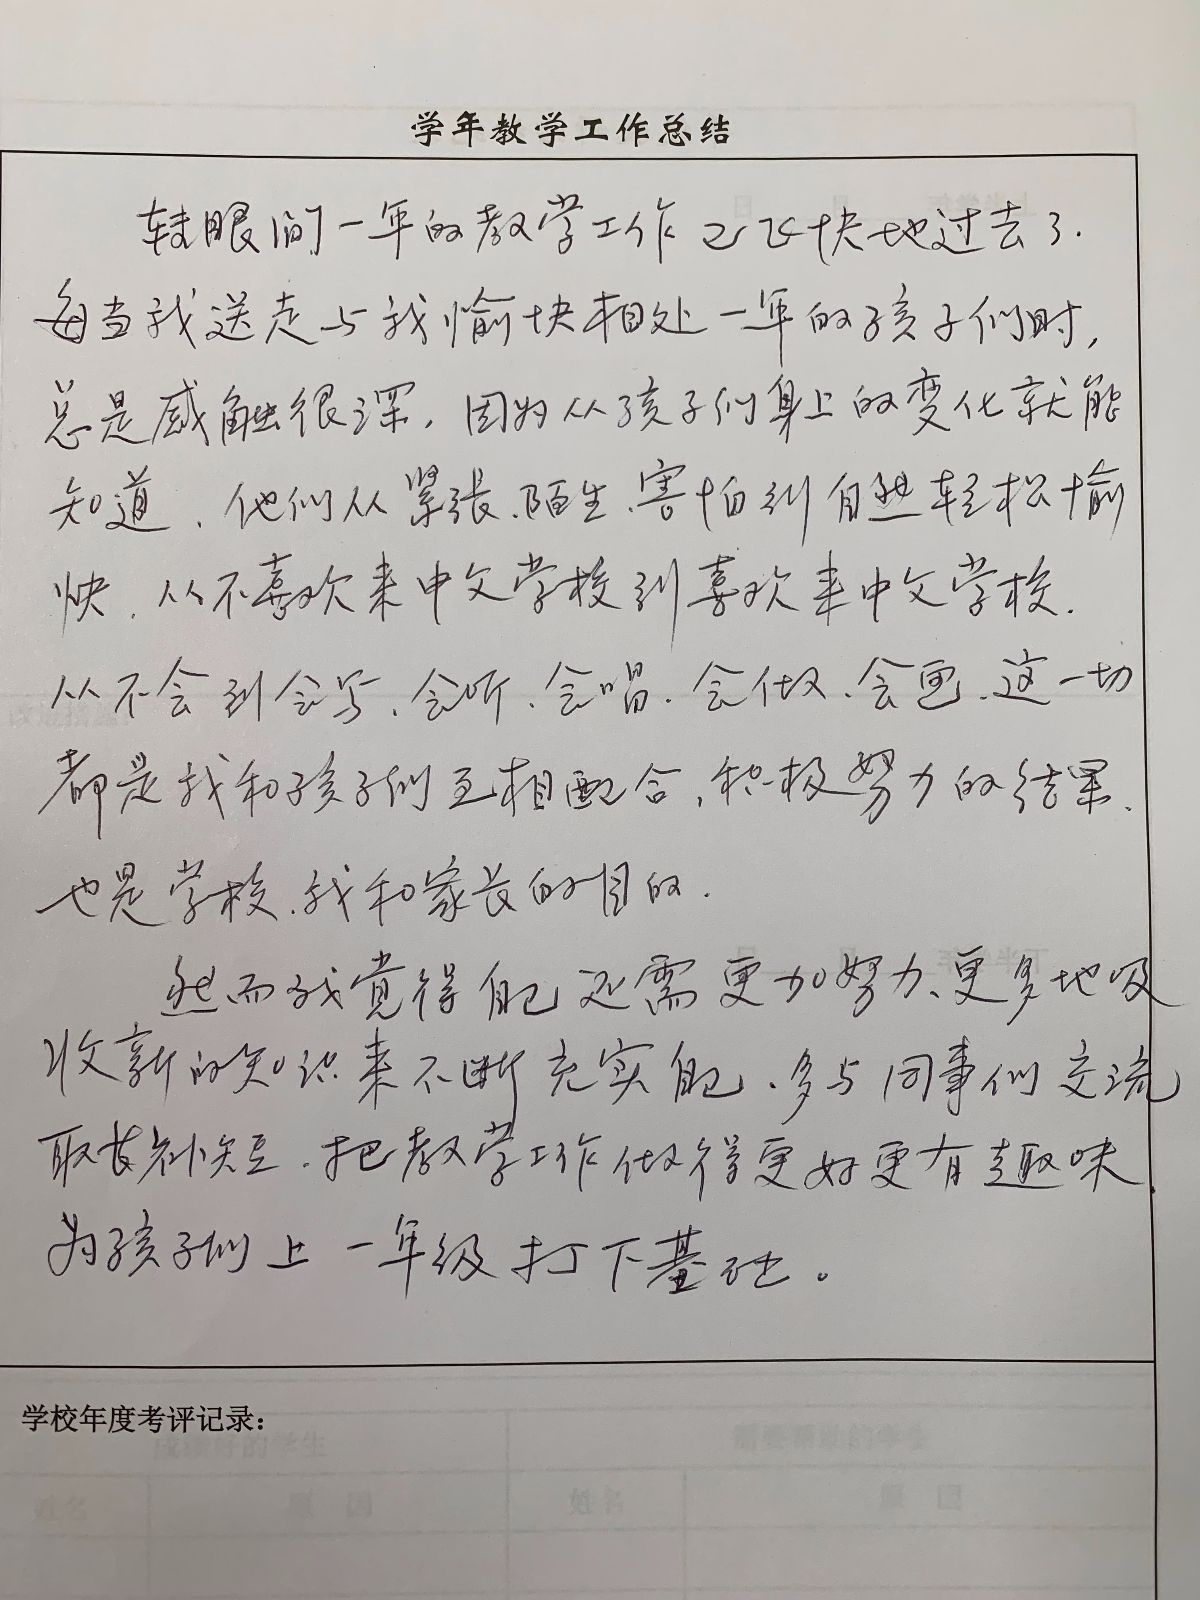 学年教学工作总结
转眼间一年的教学工作已飞快地过去了.
每当我送走与我愉快相处一年的孩子们时,
总是感触很深, 因为从孩子们身上的变化就能
知道、他们从紧张、陌生、害怕到自然轻松愉
快、从不喜欢来中文学校到喜欢来中文学校.
从不会到会写、会听、会唱、会做、会画、这一切
都是我和孩子们互相配合,积极努力的结果、
也是学校、我和家长的目的.
然而我觉得自己还需更加努力、更多地吸
收新的知识来不断充实自己、多与同事们交流
取长补短、把教学工作做得更好更有趣味
为孩子们上一年级打下基础。
学校年度考评记录: